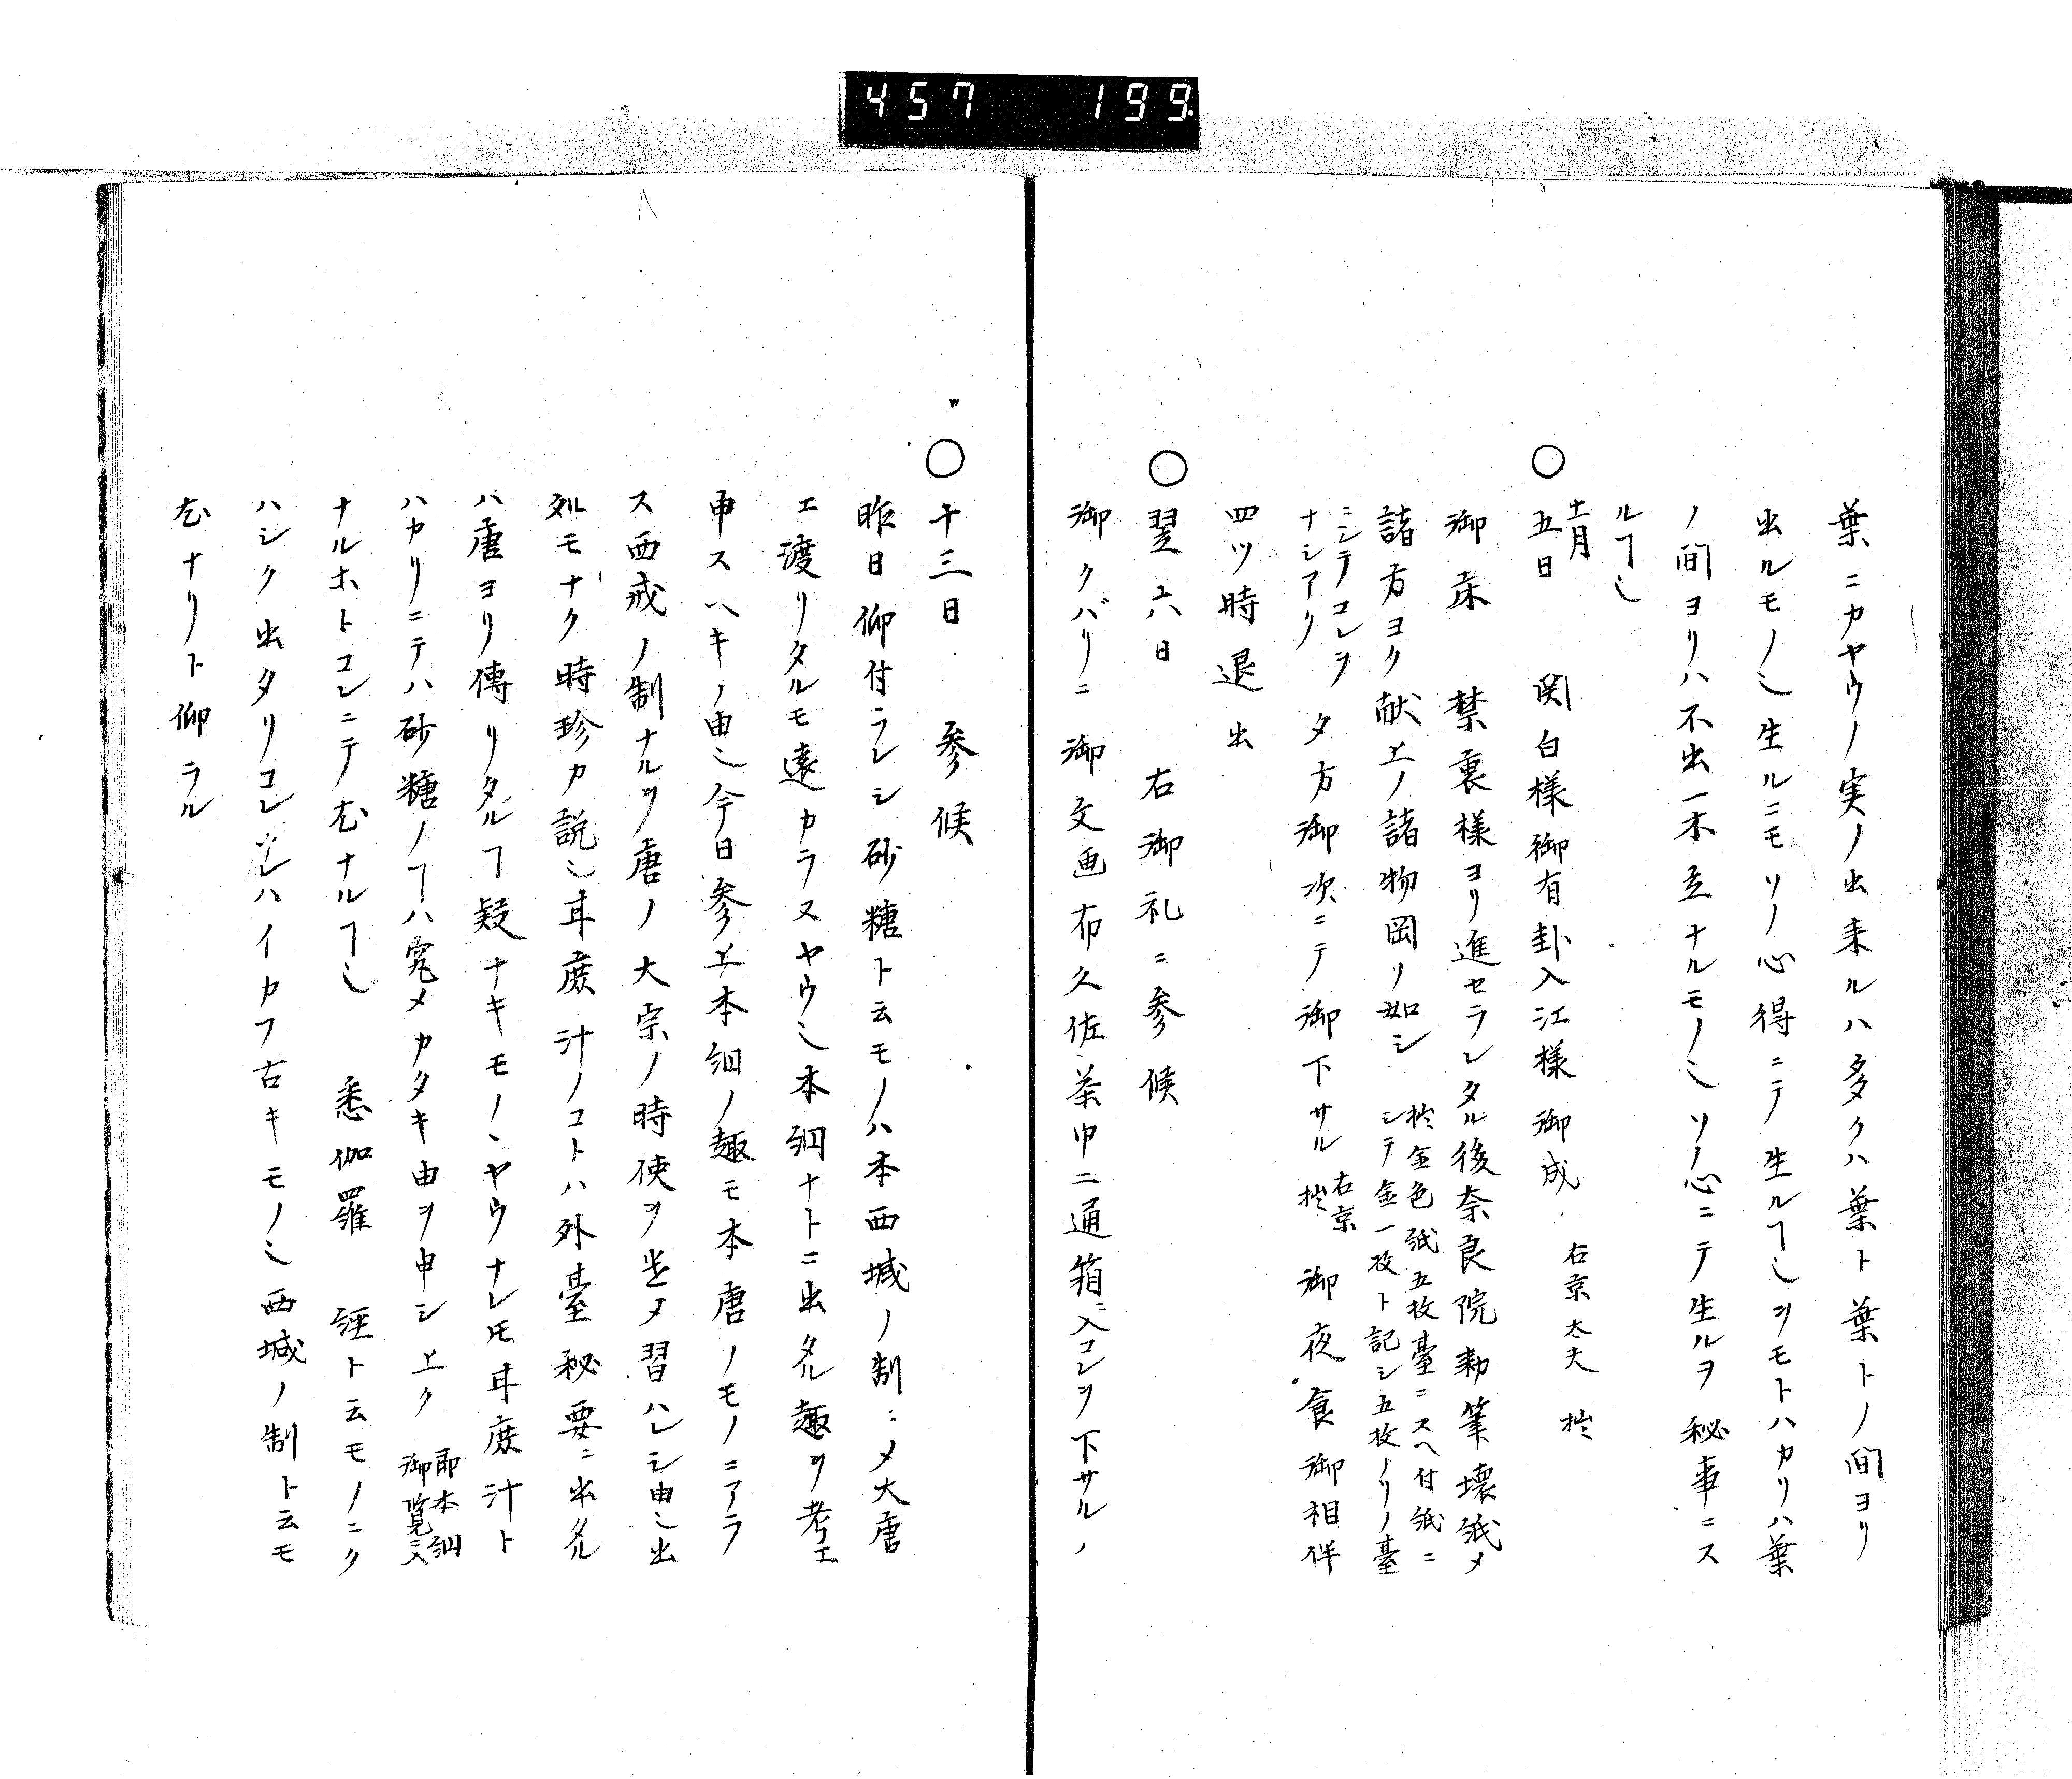 457 199
葉ニカヤウノ実ノ出来ルハ多クハ葉ト葉トノ間ヨリ
出ルモノ也生ルニモソノ心得ニテ生ルヿ也ヲモトハカリハ葉
ノ間ヨリハ不出一本立ナルモノ也ソノ心ニテ生ルヲ秘事ニス
ルヿ也
○十一月五日 関白様御有卦入江様御成 右京太夫 拙
御床 禁裏様ヨリ進セラレタル後奈良院勅筆壊紙〆
諸方ヨク献上ノ諸物岡ノ如シ 拙金色紙五枚臺ニスヘ付紙ニ
シテ金一枚ト記シ五枚ノリノ臺
ニシテコレヲ
ナシアク 夕方御次ニテ御下サル 右京 拙 御夜食御相伴
四ツ時退出
○翌六日 右御礼ニ参候
御クバリニ御文画布久佐茶巾二通箱ニ入コレヲ下サルノ
○十三日 参候
昨日仰付ラレシ砂糖ト云モノハ本西域ノ制ニ〆大唐
エ渡リタルモ遠カラヌヤウ也本綱ナトニ出タル趣ヲ考エ
申スヘキノ由也今日参上本綱ノ趣モ本唐ノモノニアラ
ス西戎ノ制ナルヲ唐ノ大宗ノ時使ヲ遣〆習ハレシ由也出
タルモナク時珍カ説也耳蔗汁ノコトハ外臺秘要ニ出タル
ハ唐ヨリ傳リタルヿ疑ナキモノヽヤウナレ𪜈耳蔗汁ト
ハカリニテハ砂糖ノヿハ究メカタキ由ヲ申シ上ク 即本綱
御覧ニ入
ナルホトコレニテ尤ナルヿ也 悉伽羅 経ト云モノニク
ハシク出タリコレソレハイカフ古キモノ也西域ノ制ト云モ
尤ナリト仰ラル